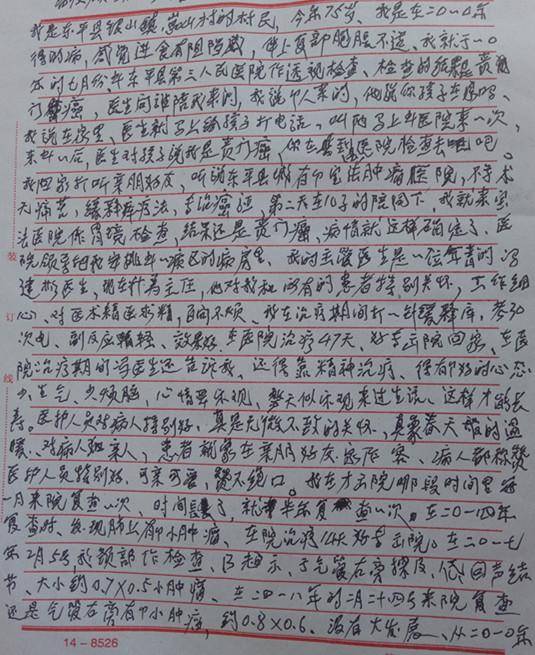 我是东平县银山镇 村的村民，今年75岁，我是在二0一0年
得的病，感觉进食有阻隔感，伴上复部胸胀不适，我就于一0
年的七月份去东平县第三人民医院作透视检查，检查的结果是贲
门癌，医生问谁陪我来的，我说个人来的，他说你孩子在家吗，
我说在家里，医生就马上给孩子打电话，叫他马上到医院来一次，
来到以后，医生对孩子说我是贲门癌，你在县医院检查去吧
我回家打听亲朋好友，听说东平县 有个 肿瘤医院，不手术
无痛苦，缓释库疗法，专治癌症 第二天在儿子的陪同下，我就来
法医院作胃境检查，结果还是贲门癌，病情就这样确定了，医
院领导给我安排到一病区的病房里，我的主管医生是一位年青的冯
建 医生，现在升为主任，他对我和所有的患者特别关怀，工作细
心，对医术精益求精，百问不烦，我在治疗期间打一针缓释库，
次电，副反应轻，效果好，在医院治疗47天，好专出院回家，在医
院治疗期的冯医生还告诉我，还得靠精神治疗，得有个好的心态
少生气，少烦脑，心情要乐观，整天似乐观来过生活，这样才能长
寿。医护人员对病人特别好，真是无微不致的关怀，真象春天般的温
暖，对病人如亲人，患者就象在亲朋好友 客，病人都称赞
医护人员特别好，可亲可爱，赞不绝口。我在才出院哪段时间里
一月来院复查一次，时间长了，就半年复查一次。在二0一四年
复查时，发现肺上有个小肿瘤，在院治疗 天好专出院。在二0一七
年2月5号我颈部作检查，B超示，气管右旁探及，低回声结
节，大小约0.7X0.5小肿瘤，在二0一八年的二月二十四号来院复查
还是气管右旁有个小肿瘤，约0.8X0.6，没有大发展，从二0一0年
装
订
线
14-8526